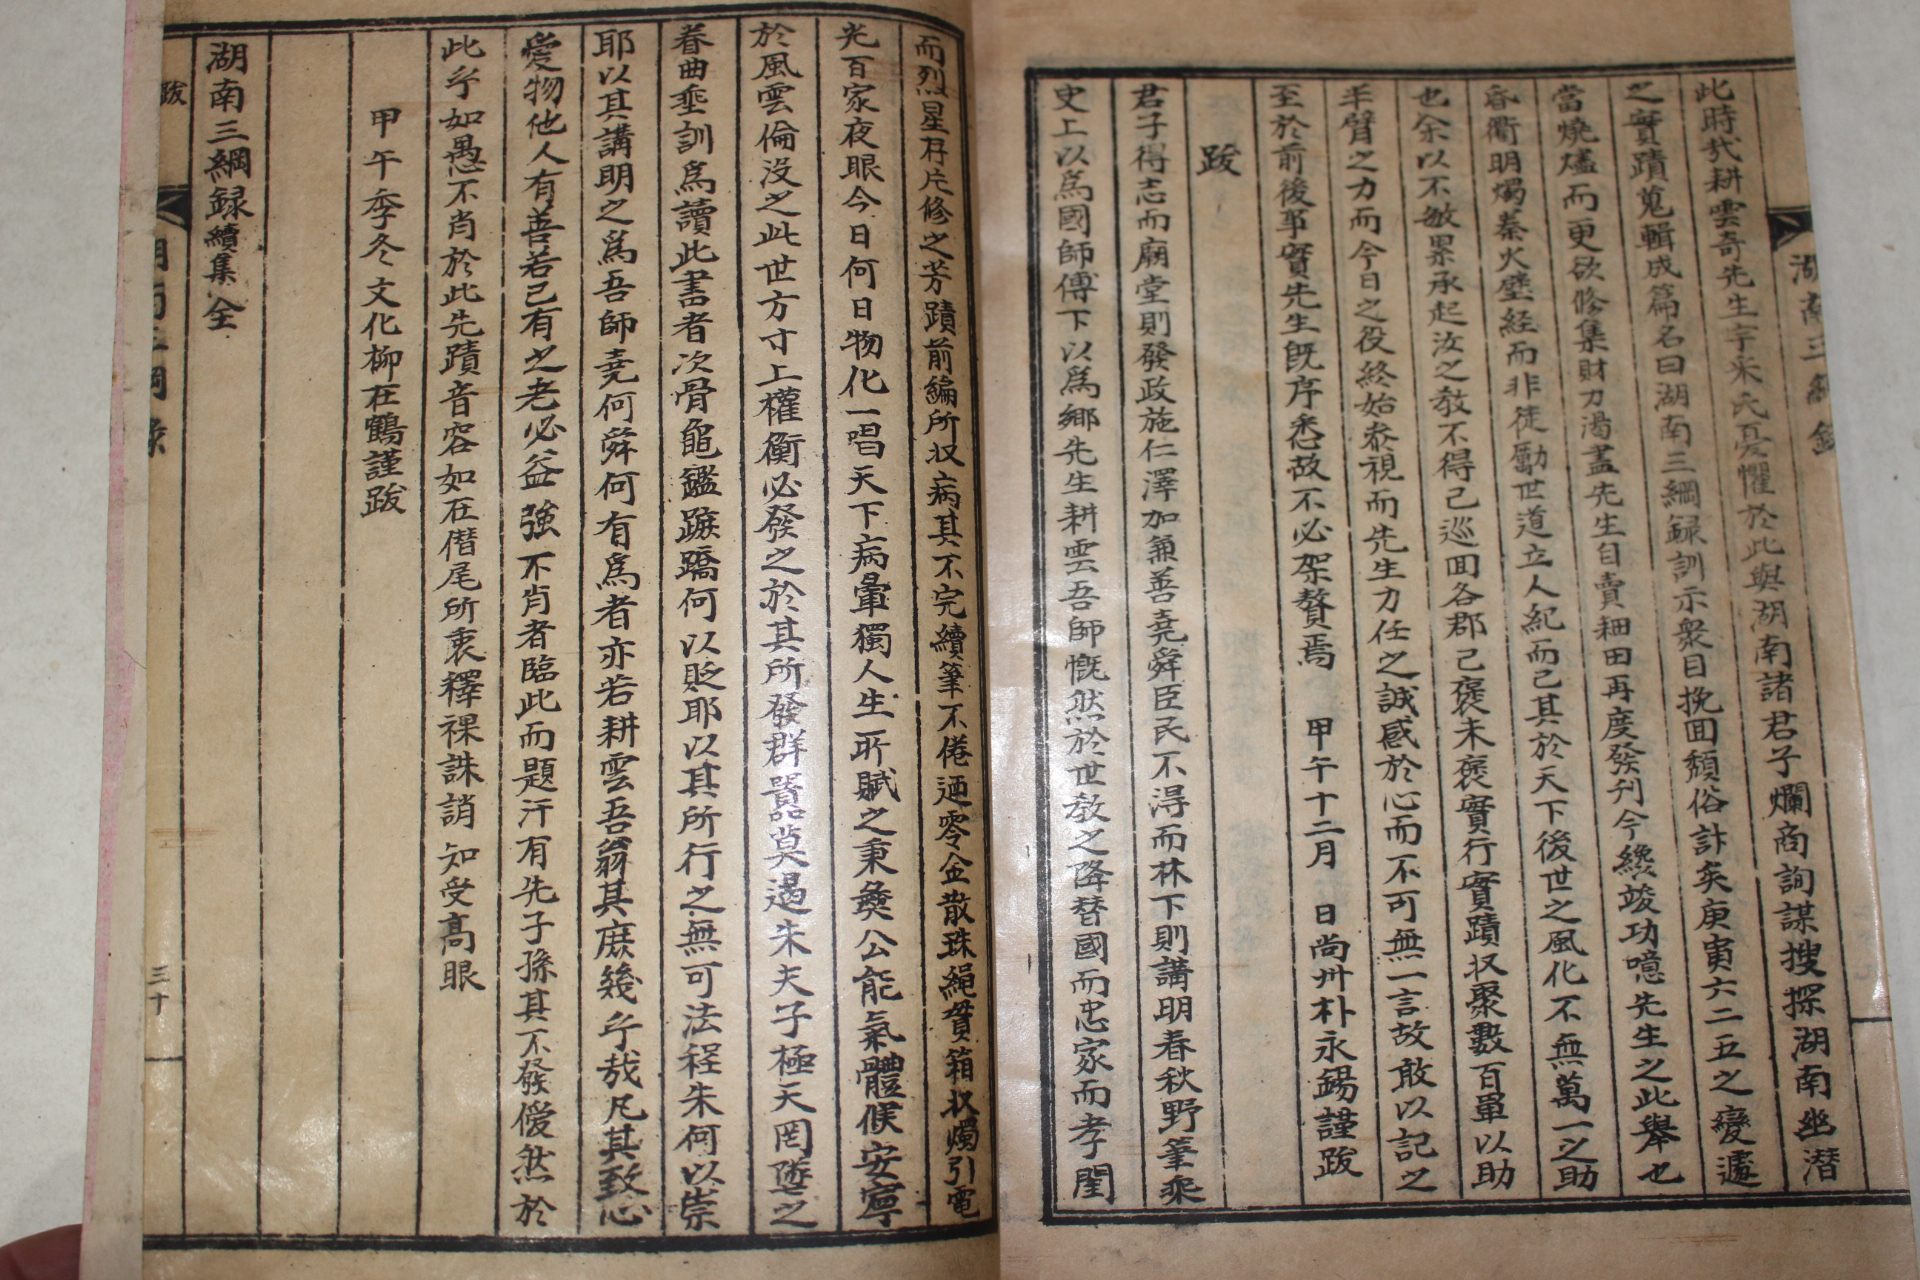 湖南三綱錄
此時哉耕雲奇先生宇采氏憂懼於此與湖南諸君子爛商詢謀搜探湖南幽潛
之實蹟蒐輯成篇名曰湖南三綱録訓示衆目挽回頹俗計矣庚寅六二五之變遽
當燒燼而更欲修集財力湯盡先生自賣細田再度發刊今纔竣功噫先生之此舉也
昏衢明燭秦火壁経而非徒勵世道立人紀而已其於天下後世之風化不無萬一之助
也余以不敏累承起汝之敎不得已巡回各郡已褒未褒實行實蹟収聚數百單以助
半臂之力而今日之役終始泰視而先生力任之誠感於心而不可無一言故敢以記之
至於前後事實先生旣序悉故不必架贅焉 甲午十二月 日尚州朴永錫謹跋
跋
君子得志而廟堂則發政施仁澤加兼善堯舜臣民不淂而林下則講明春秋野筆乘
史上以爲國師傅下以爲鄉先生耕雲吾師慨然於世敎之降替國而忠家而孝閨
而烈星存片修之芳蹟前編所収病其不完續筆不倦迺零金散珠繩貫箱収燭引電
光百家夜眼今日何日物化一唱天下病暈獨人生所賦之秉彝公能氣體候安寧
於風雲倫没之此世方寸上權衡必發之於其所發群囂莫遏朱夫子極天罔墜之
眷曲垂訓爲讀此書者次骨龜鑑蹠蹻何以貶耶以其所行之無可法程朱何以崇
耶以其講明之爲吾師堯何舜何有爲者亦若耕雲吾翁其庶幾乎哉凡其致心
愛物他人有善若己有之老必益強不肖者臨此而題汗有先子孫其不發僾然於
此乎如愚不肖於此先蹟音容如在僭尾所衷釋裸誅誚知受髙眼
甲午季冬文化柳在鶴謹跋
湖南三綱録續集全
跋
湖南三綱录
三十